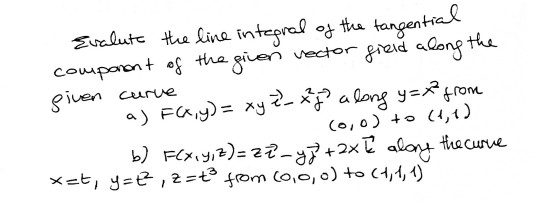 Evalute the line integral of the tangential
component of the given vector field along the
given curve
a) F(x,y) = xy i⃗ - x² j⃗ along y=x² from
(0,0) to (1,1)
b) F(x,y,z) = z i⃗ - y j⃗ + 2x k⃗ along the curve
x=t, y=t², z=t³ from (0,0,0) to (1,1,1)